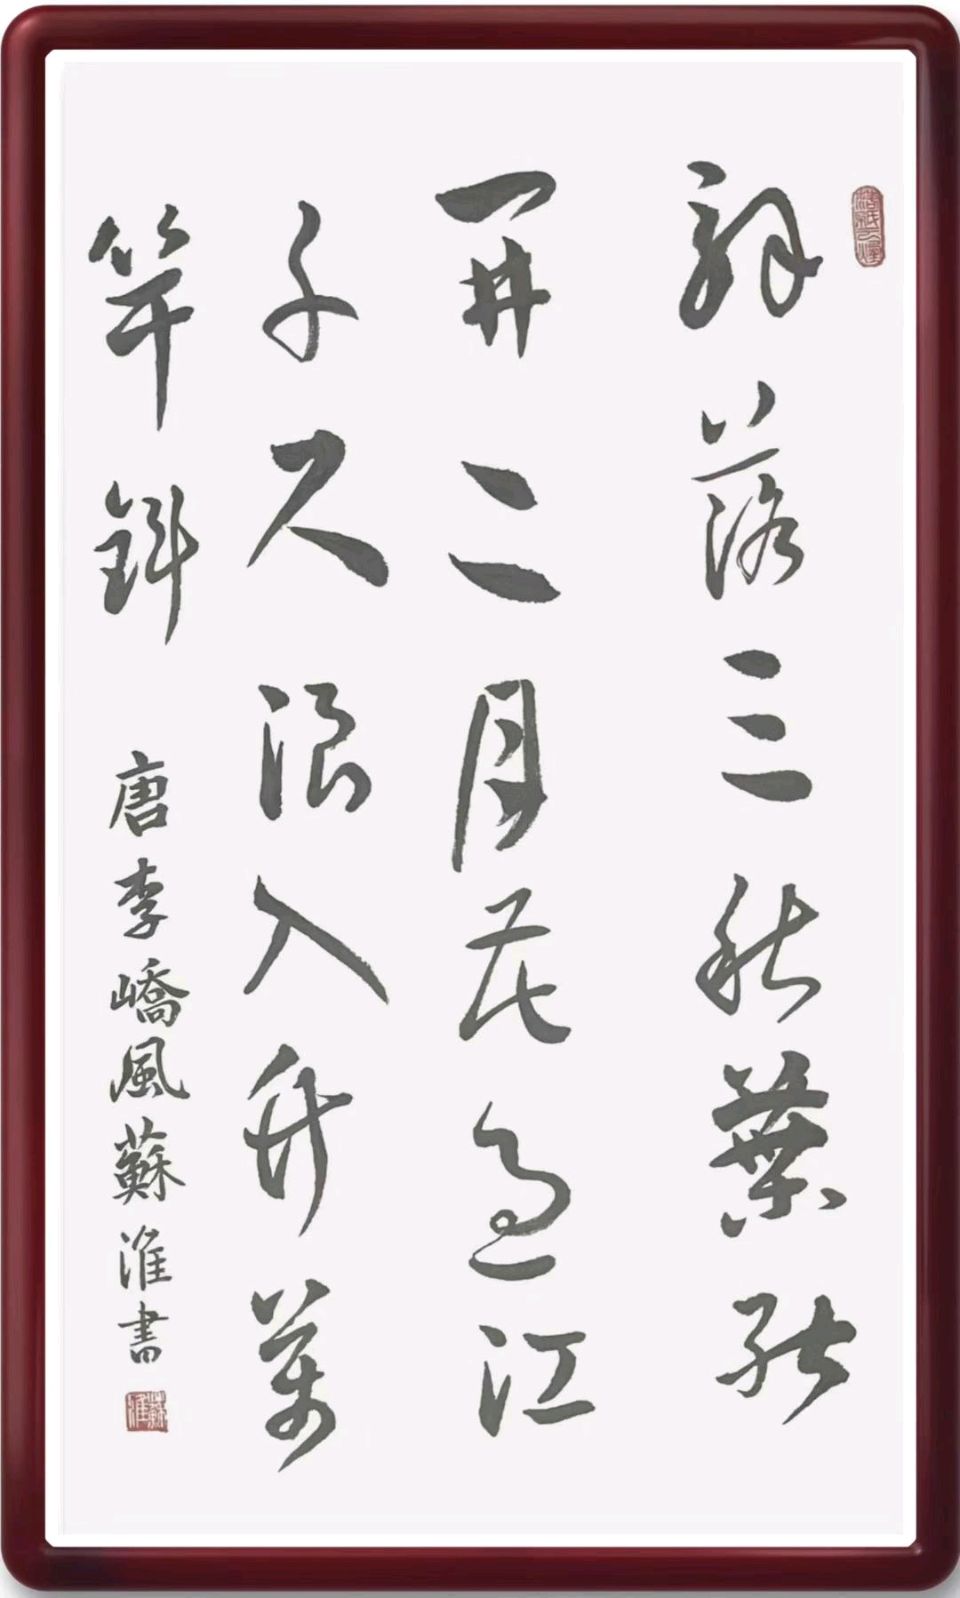 解落三秋葉能
開二月花過江
千尺浪入竹萬
竿斜 唐李嶠風蘇淮書
蘇淮